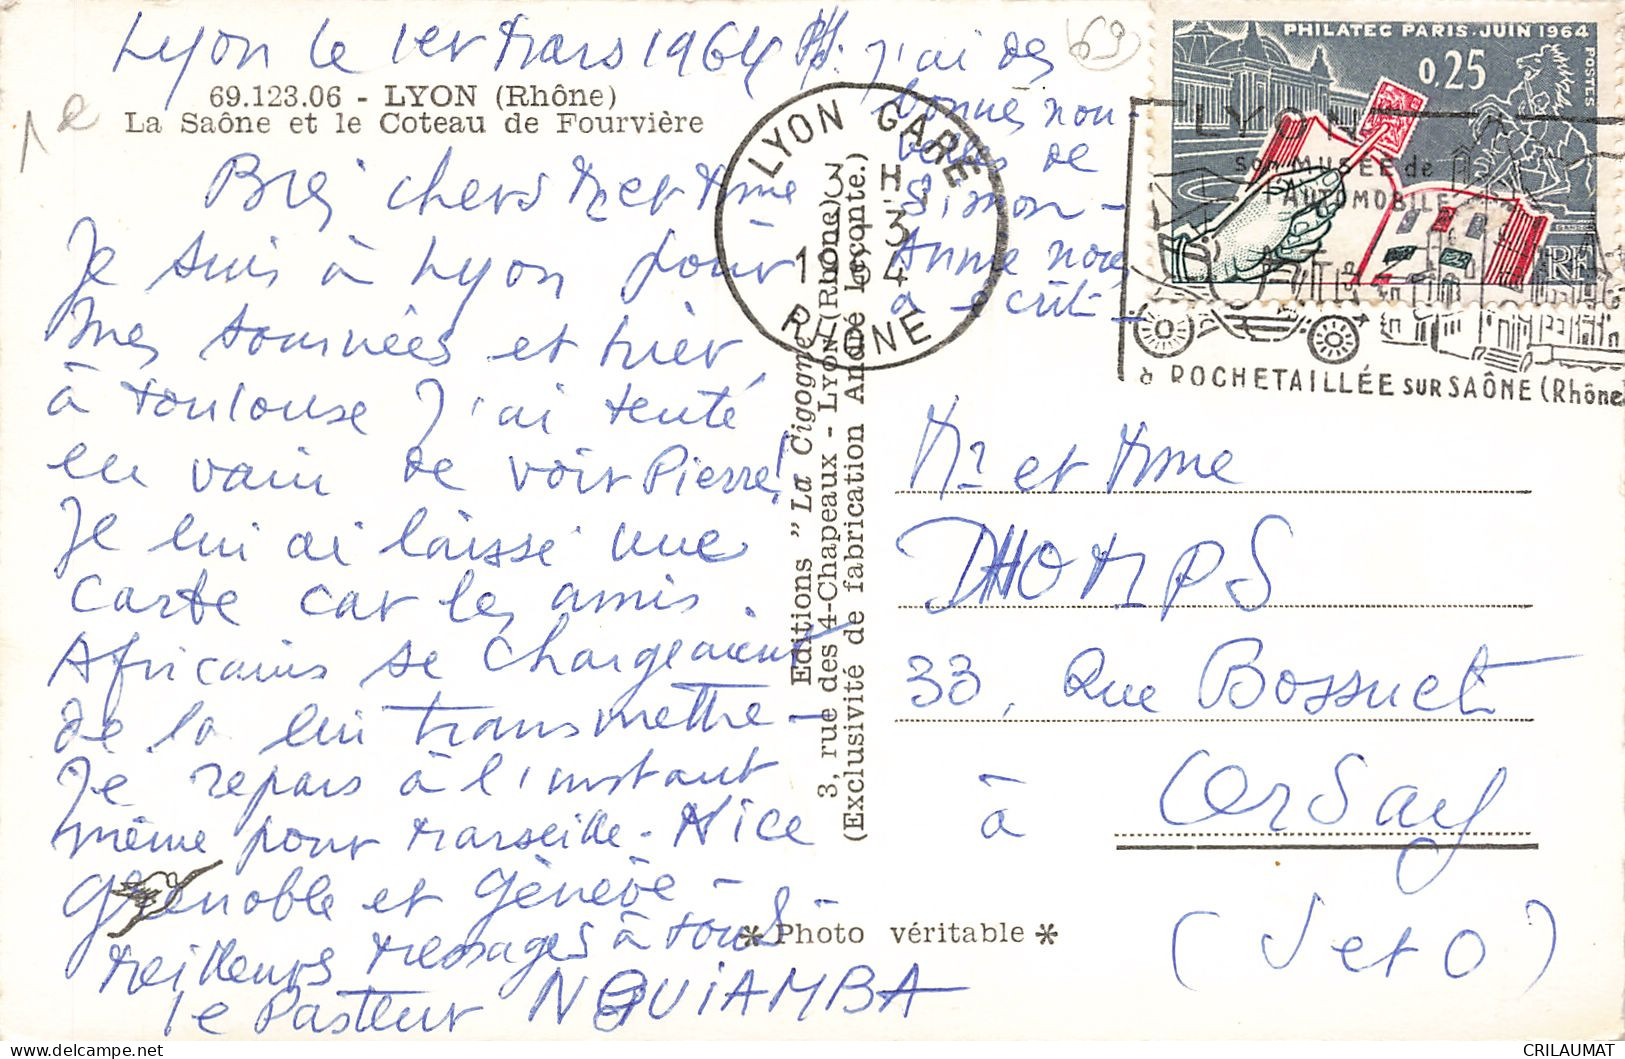 Lyon le 1er Mars 1964
69.123.06 - LYON (Rhône)
La Saône et le Coteau de Fourvière
1e
chers Mr et Mme
Je suis à Lyon pour
mes tournées et hier
à Toulouse J'ai tenté
en vain de voir Pierre!
Je lui ai laissé une
carte car les amis
Africains se chargeaient
de la lui transmettre -
Je repars à l'instant
même pour Marseille - Nice
Grenoble et Génève -
Meilleurs Messages à tous -
le Pasteur NGUIAMBA
J'ai de
bonnes nou-
velles de
Simon -
Annie nous
a écrit -
69
LYON GARE
3 H
1 3
1964
RHONE
PHILATEC PARIS JUIN 1964
0,25
POSTES
RF
LYON
son MUSÉE de
l'AUTOMOBILE
à ROCHETAILLÉE SUR SAÔNE (Rhône)
Editions "La Cigogne"
3, rue des 4-Chapeaux - LYON (Rhône)
(Exclusivité de fabrication André Leconte.)
Mr et Mme
DHOMPS
33, Rue Bossuet
à Orsay
(S et O)
* Photo véritable *
CRILAUMAT